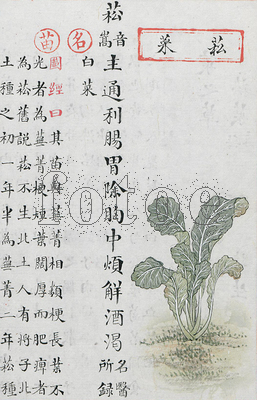 菘菜
菘音嵩主通利腸胃除胸中煩解酒渴名醫所錄
名白菜
苗圖經曰其苗與蕪菁相類梗長葉不
光者為蕪菁梗短葉闊厚而肥痹者
為菘舊說菘不生北土人有將子北
土種之初一年半為蕪菁二年菘種
fotoe